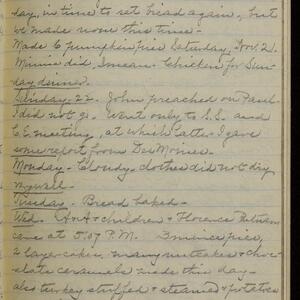 day, in time to set bread again, but
we made room this time -
Made 6 pumpkin pies Saturday, Nov. 2.
Minnie did, I mean. Chicken for Sun-
day dinner.
Sunday 22. John preached on Paul.
I did not go. Went only to S.S. and
C.E. meeting, at which latter I gave
some report from Des Moines.
Monday - Cloudy - clothes did not dry
very well -
Tuesday - Bread baked -
Wed. & children & Florence
came at 5.07 P.M. 3 mince pies,
2 layer cakes, many nut cakes & choc-
olate caramels made this day -
also turkey stuffed & steamed & potatoes